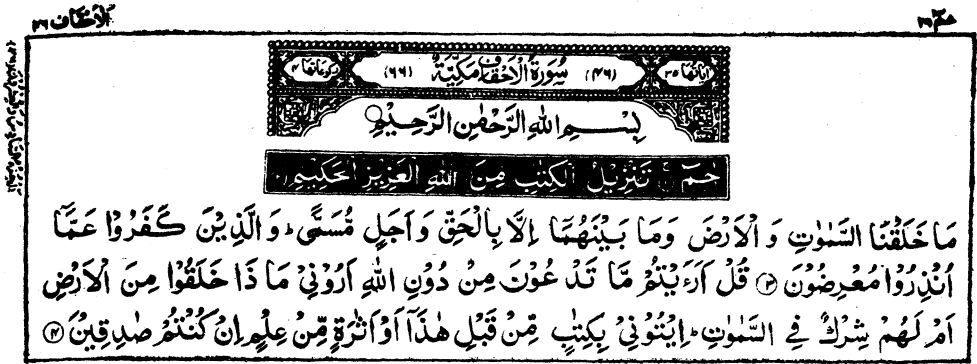 حٰمٓ ٢٦
الاحقاف ٤٦
اٰیَاتُهَا ٣٥
(٤٦) سُوْرَةُ الْاَحْقَافِ مَكِّیَّةٌ (٦٦)
رُكُوْعَاتُهَا ٤
بِسْمِ اللهِ الرَّحْمٰنِ الرَّحِیْمِ
حٰمٓ ۚ تَنْزِیْلُ الْكِتٰبِ مِنَ اللهِ الْعَزِیْزِ الْحَكِیْمِ
مَا خَلَقْنَا السَّمٰوٰتِ وَ الْاَرْضَ وَمَا بَیْنَهُمَا اِلَّا بِالْحَقِّ وَ اَجَلٍ مُّسَمًّی ؕ وَ الَّذِیْنَ كَفَرُوْا عَمَّاۤ
اُنْذِرُوْا مُعْرِضُوْنَ ﴿٣﴾ قُلْ اَرَءَیْتُمْ مَّا تَدْعُوْنَ مِنْ دُوْنِ اللهِ اَرُوْنِیْ مَا ذَا خَلَقُوْا مِنَ الْاَرْضِ
اَمْ لَهُمْ شِرْكٌ فِی السَّمٰوٰتِ ؕ اِیْتُوْنِیْ بِكِتٰبٍ مِّنْ قَبْلِ هٰذَاۤ اَوْ اَثٰرَةٍ مِّنْ عِلْمٍ اِنْ كُنْتُمْ صٰدِقِیْنَ ﴿٤﴾